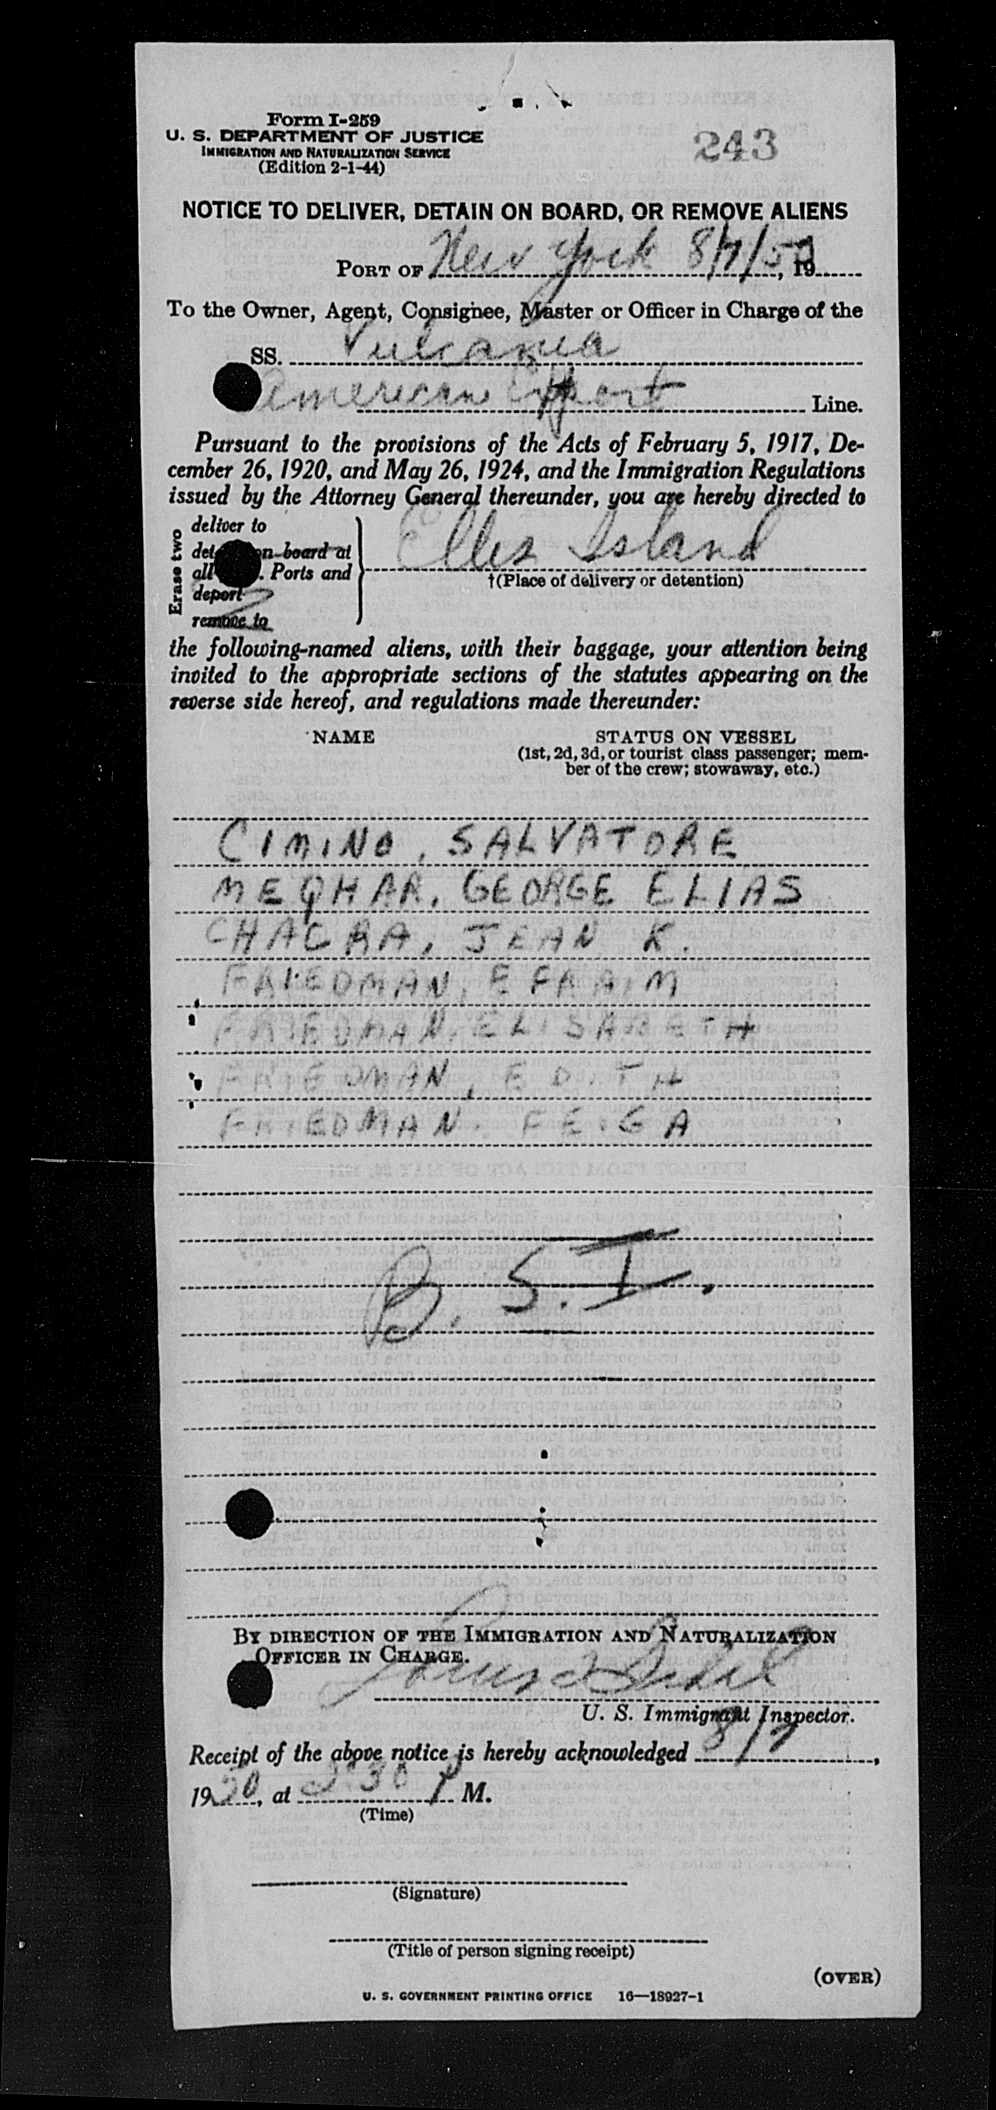 Form I-259
U. S. DEPARTMENT OF JUSTICE
IMMIGRATION AND NATURALIZATION SERVICE
(Edition 2-1-44)
243
NOTICE TO DELIVER, DETAIN ON BOARD, OR REMOVE ALIENS
PORT OF New York 8/7/50, 19
To the Owner, Agent, Consignee, Master or Officer in Charge of the
SS. Vulcania
American Export Line.
Pursuant to the provisions of the Acts of February 5, 1917, De-
cember 26, 1920, and May 26, 1924, and the Immigration Regulations
issued by the Attorney General thereunder, you are hereby directed to
Erase two
deliver to
det on board at
all . Ports and
deport
remove to
Ellis Island
†(Place of delivery or detention)
the following-named aliens, with their baggage, your attention being
invited to the appropriate sections of the statutes appearing on the
reverse side hereof, and regulations made thereunder:
NAME STATUS ON VESSEL
(1st, 2d, 3d, or tourist class passenger; mem-
ber of the crew; stowaway, etc.)
CIMINO, SALVATORE
GEORGE ELIAS
JEAN K.
FRIEDMAN, EFRAIM
FRIEDMAN, ELISABETH
FRIEDMAN, EDITH
FRIEDMAN. FEIGA
B. S. I.
BY DIRECTION OF THE IMMIGRATION AND NATURALIZATION
OFFICER IN CHARGE.
U. S. Immigrant Inspector.
Receipt of the above notice is hereby acknowledged 8/7,
1950, at :30 P M.
(Time)
(Signature)
(Title of person signing receipt)
(OVER)
U. S. GOVERNMENT PRINTING OFFICE 16—18927-1